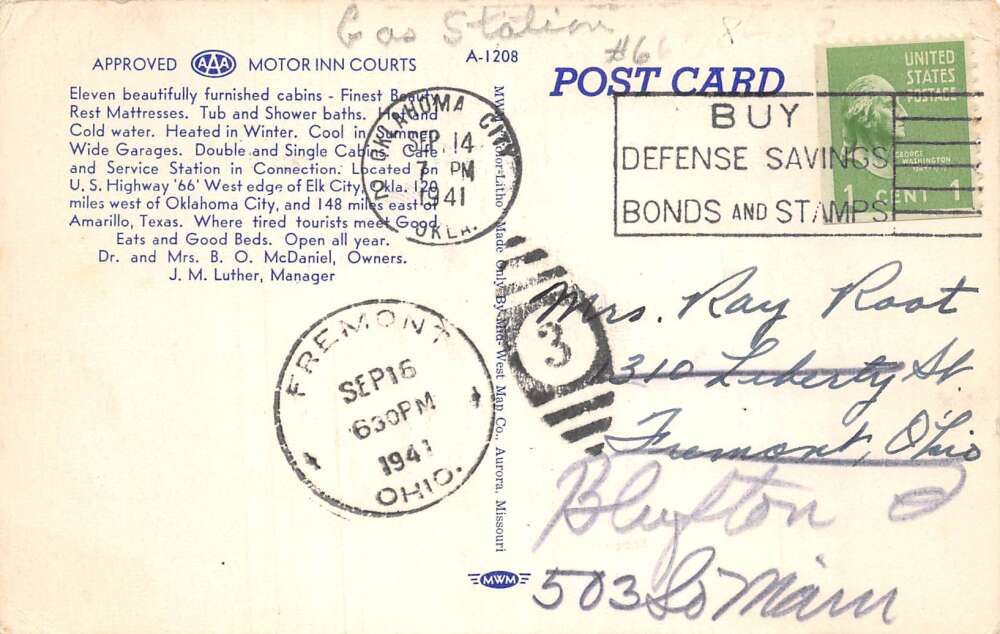 Gas Station
#66
APPROVED AAA MOTOR INN COURTS
A-1208
Eleven beautifully furnished cabins - Finest Beauty
Rest Mattresses. Tub and Shower baths. Hot and
Cold water. Heated in Winter. Cool in Summer.
Wide Garages. Double and Single Cabins. Cafe
and Service Station in Connection. Located on
U. S. Highway '66' West edge of Elk City, Okla. 120
miles west of Oklahoma City, and 148 miles east of
Amarillo, Texas. Where tired tourists meet Good
Eats and Good Beds. Open all year.
Dr. and Mrs. B. O. McDaniel, Owners.
J. M. Luther, Manager
OKLAHOMA CITY
SEP 14
7 PM
1941
OKLA.
FREMONT
SEP 16
630 PM
1941
OHIO.
MWM Color-Litho Made Only By Mid-West Map Co., Aurora, Missouri
MWM
POST CARD
UNITED
STATES
POSTAGE
GEORGE
WASHINGTON
1 CENT 1
BUY
DEFENSE SAVINGS
BONDS AND STAMPS
3
Mrs. Ray Root
310 Liberty St
Fremont, Ohio
Bluffton O
503 So Main